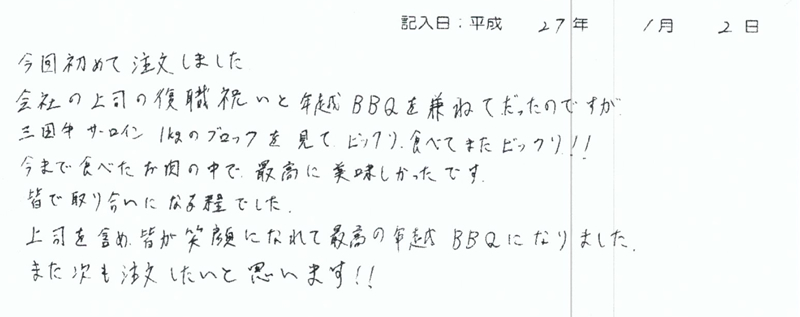 記入日：平成 27年 1月 2日
今回初めて注文しました
会社の上司の復職祝いと年越BBQを兼ねてだったのですが
三田牛サーロイン1kgのブロックを見て、ビックリ、食べてまたビックリ!!
今まで食べたお肉の中で、最高に美味しかったです。
皆で取り合いになる程でした。
上司を含め、皆が笑顔になれて最高の年越BBQになりました。
また次も注文したいと思います!!